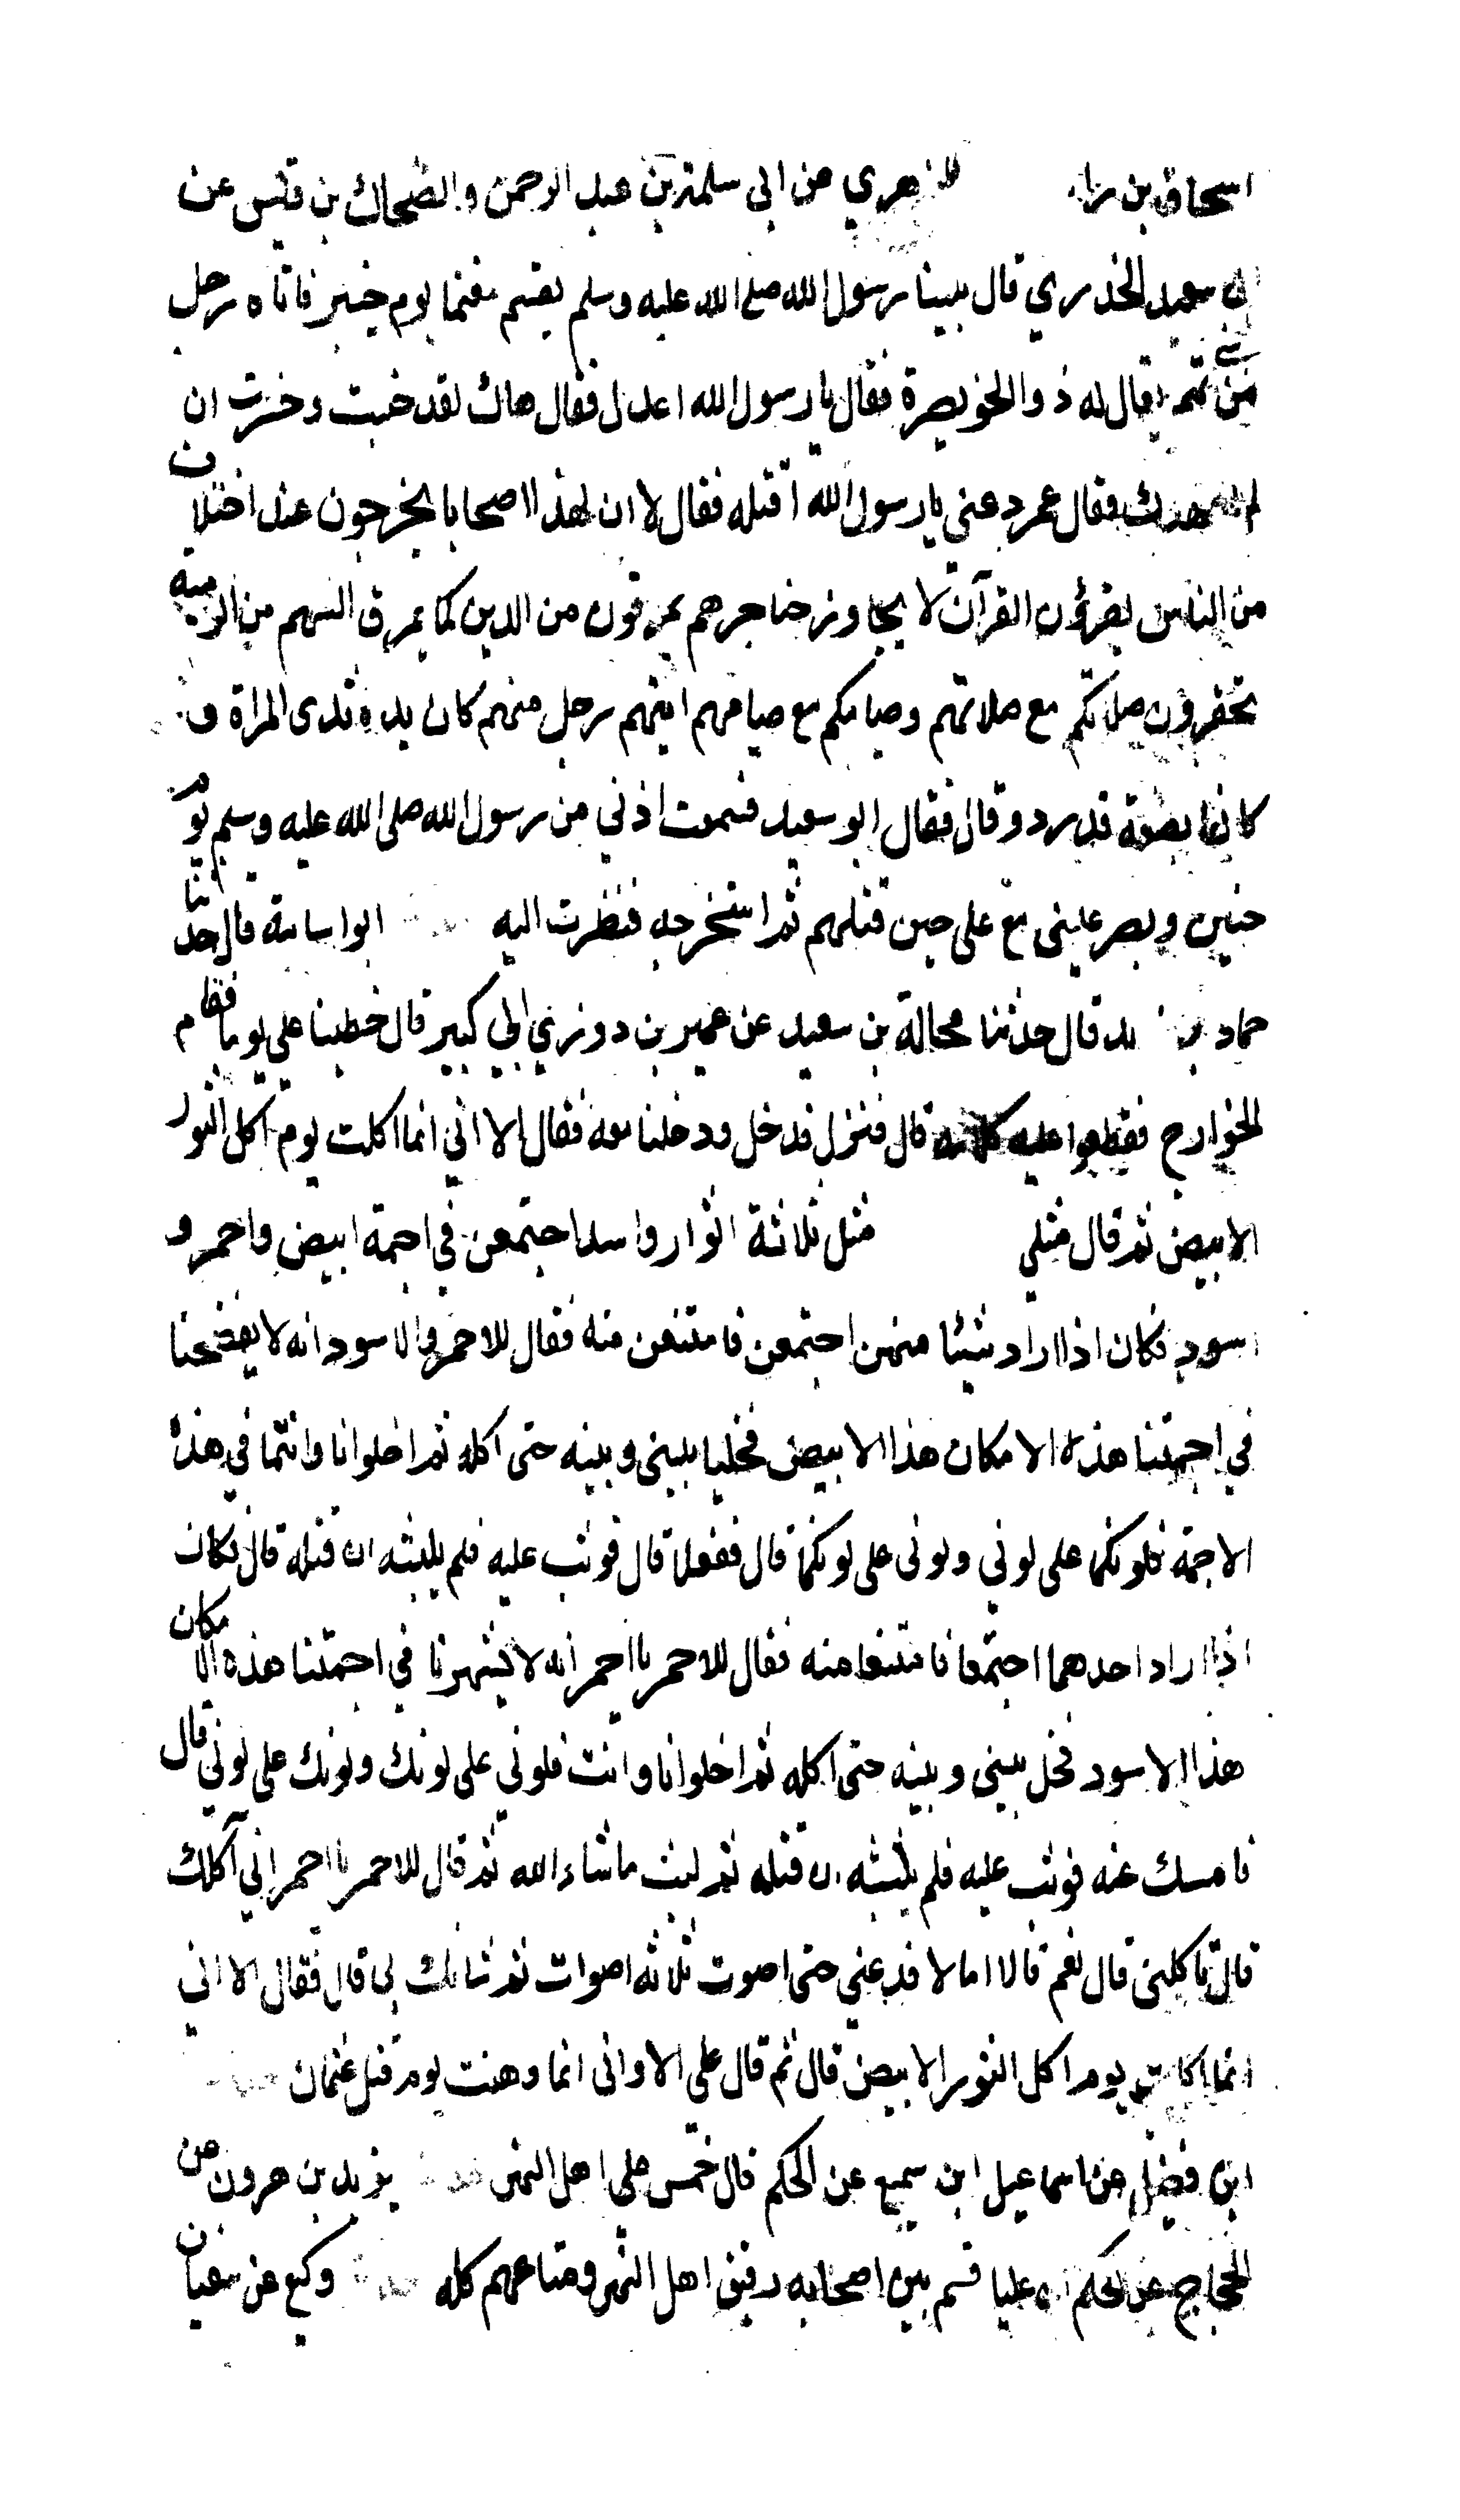 اسحاق بن را الزهري عن ابي سلمة بن عبد الرحمن والضحاك بن قيس عن
ابي سعيد الخدري قال بينا رسول الله صلى الله عليه وسلم يقسم مغنما يوم خيبر فاتاه رجل
من تميم يقال له ذو الخويصرة فقال يا رسول الله اعدل فقال هاك لقد خبت وخسرت ان
فقال عمر دعني يا رسول الله اقتله فقال لا ان لهذا اصحابا يخرجون عند اختلاف
من الناس يقرؤن القرآن لا يجاوز حناجرهم يمرقون من الدين كما يمرق السهم من الرمية
تحقرون صلاتكم مع صلاتهم وصيامكم مع صيامهم ايتهم رجل منهم كان يده ثدى المراة و
كانها بضعة تدردر وقال فقال ابو سعيد فسمعت اذني من رسول الله صلى الله عليه وسلم يوم
حنين وبصر عيني مع على حين قتلهم ثم استخرجه فنظرت اليه ابو اسامة قال حدثنا
حماد بن يد قال حدثنا مجالد بن سعيد عن عمير بن دوزي ابي كبير قال خطبنا علي يوما فقام
الخوارج فقطعوا عليه كلامه قال فنزل فدخل ودخلنا معه فقال الا اني انما اكلت يوم اكل الثور
الابيض ثم قال مثلي مثل ثلاثة اثوار واسد اجتمعن في اجمة ابيض واحمر و
اسود فكان اذا اراد شيئا منهن اجتمعن فامتنعن منه فقال للاحمر والاسود انه لا يفضحنا
في اجمتنا هذه الا مكان هذا الابيض فخليا بيني وبينه حتى اكله ثم اخلوا نا وانتما في هذه
الاجمة فلونكما على لوني ولوني على لونكما قال ففعلا قال فوثب عليه فلم يلبثه ان قتله قال فكان
اذا اراد احدهما اجتمعا فامتنعا منه فقال للاحمر يا احمر انه لا يشهرنا في اجمتنا هذه الا مكان
هذا الاسود فخل بيني وبينه حتى اكله ثم اخلوا نا وانت فلوني على لونك ولونك على لوني قال
فامسك عنه فوثب عليه فلم يلبثه ان قتله ثم لبث ما شاء الله ثم قال للاحمر يا احمر اني آكلك
قال تاكلني قال نعم قالا اما لا فدعني حتى اصوت ثلاثه اصوات ثم شانك بي قال فقال الا اني
انما اكلت يوم اكل الثور الابيض قال ثم قال على الا واني انما وهنت يوم قتل عثمان
ابن فضيل عن اسماعيل ابن سميع عن الحكم قال خمس على اهل النهر يزيد بن هرون عن
الحجاج عن الحكم ان عليا قسم بين اصحابه رقيق اهل النهر ومتاعهم كله وكيع عن سفيان